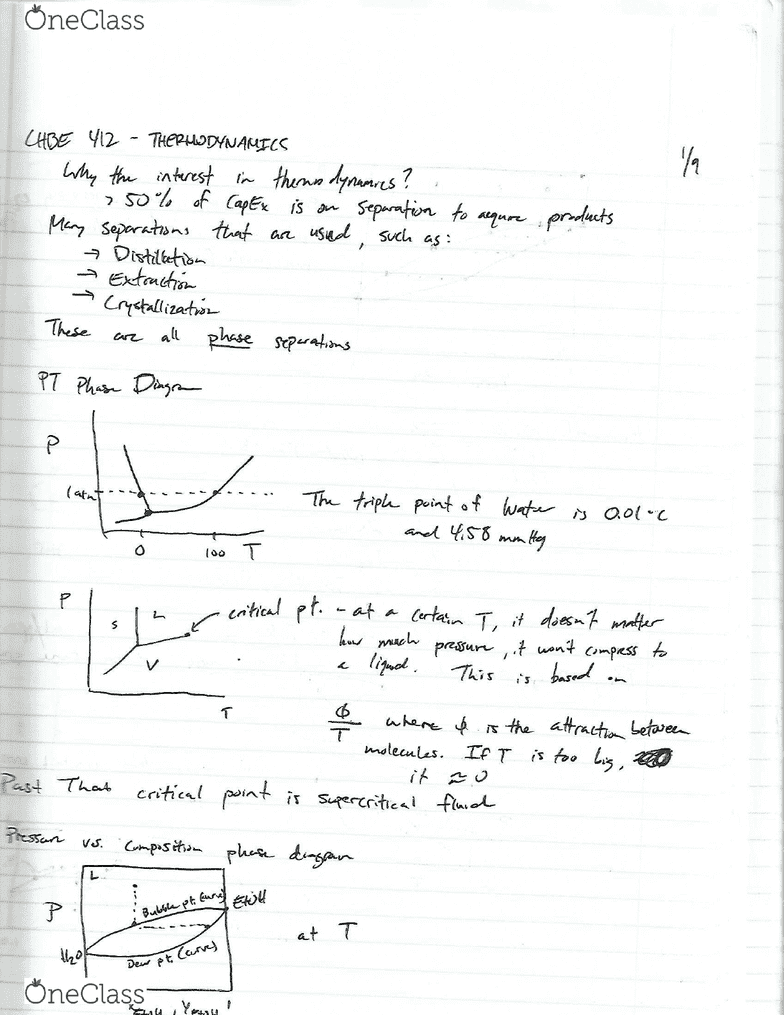 OneClass
CHBE 412 - THERMODYNAMICS
1/9
Why the interest in thermodynamics?
> 50% of CapEx is on separation to aquire products
Many separations that are used, such as:
→ Distillation
→ Extraction
→ Crystallization
These are all phase separations
PT Phase Diagram
P
1 atm
The triple point of Water is 0.01°C
and 4.58 mmHg
0 100 T
P
S L
V
T
critical pt. - at a certain T, it doesn't matter
how much pressure, it won't compress to
a liquid. This is based on
ϕ/T where ϕ is the attraction between
molecules. If T is too big,
it ≈ 0
Past That critical point is supercritical fluid
Pressure vs. Composition phase diagram
L
P
Bubble pt. (curve) EtOH
at T
H₂O Dew pt. (curve)
OneClass